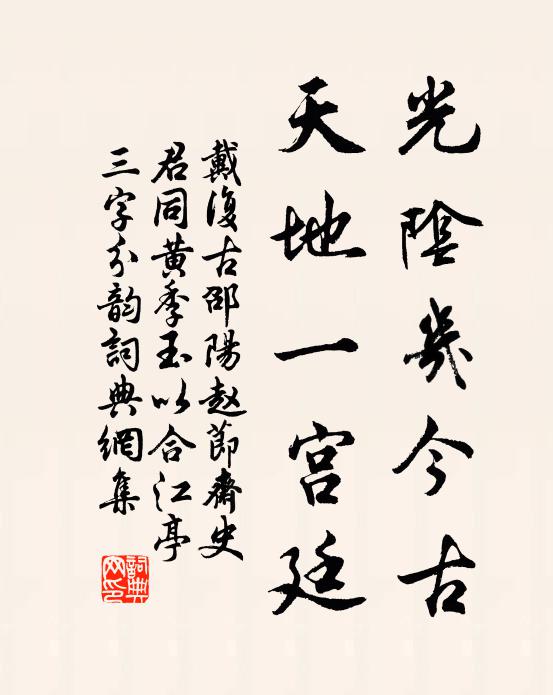 光陰幾今古
天地一宮廷
戴復古邵陽趙節齋史
君同黃季玉以合江亭
三字分韻詞典網集
詞典網印